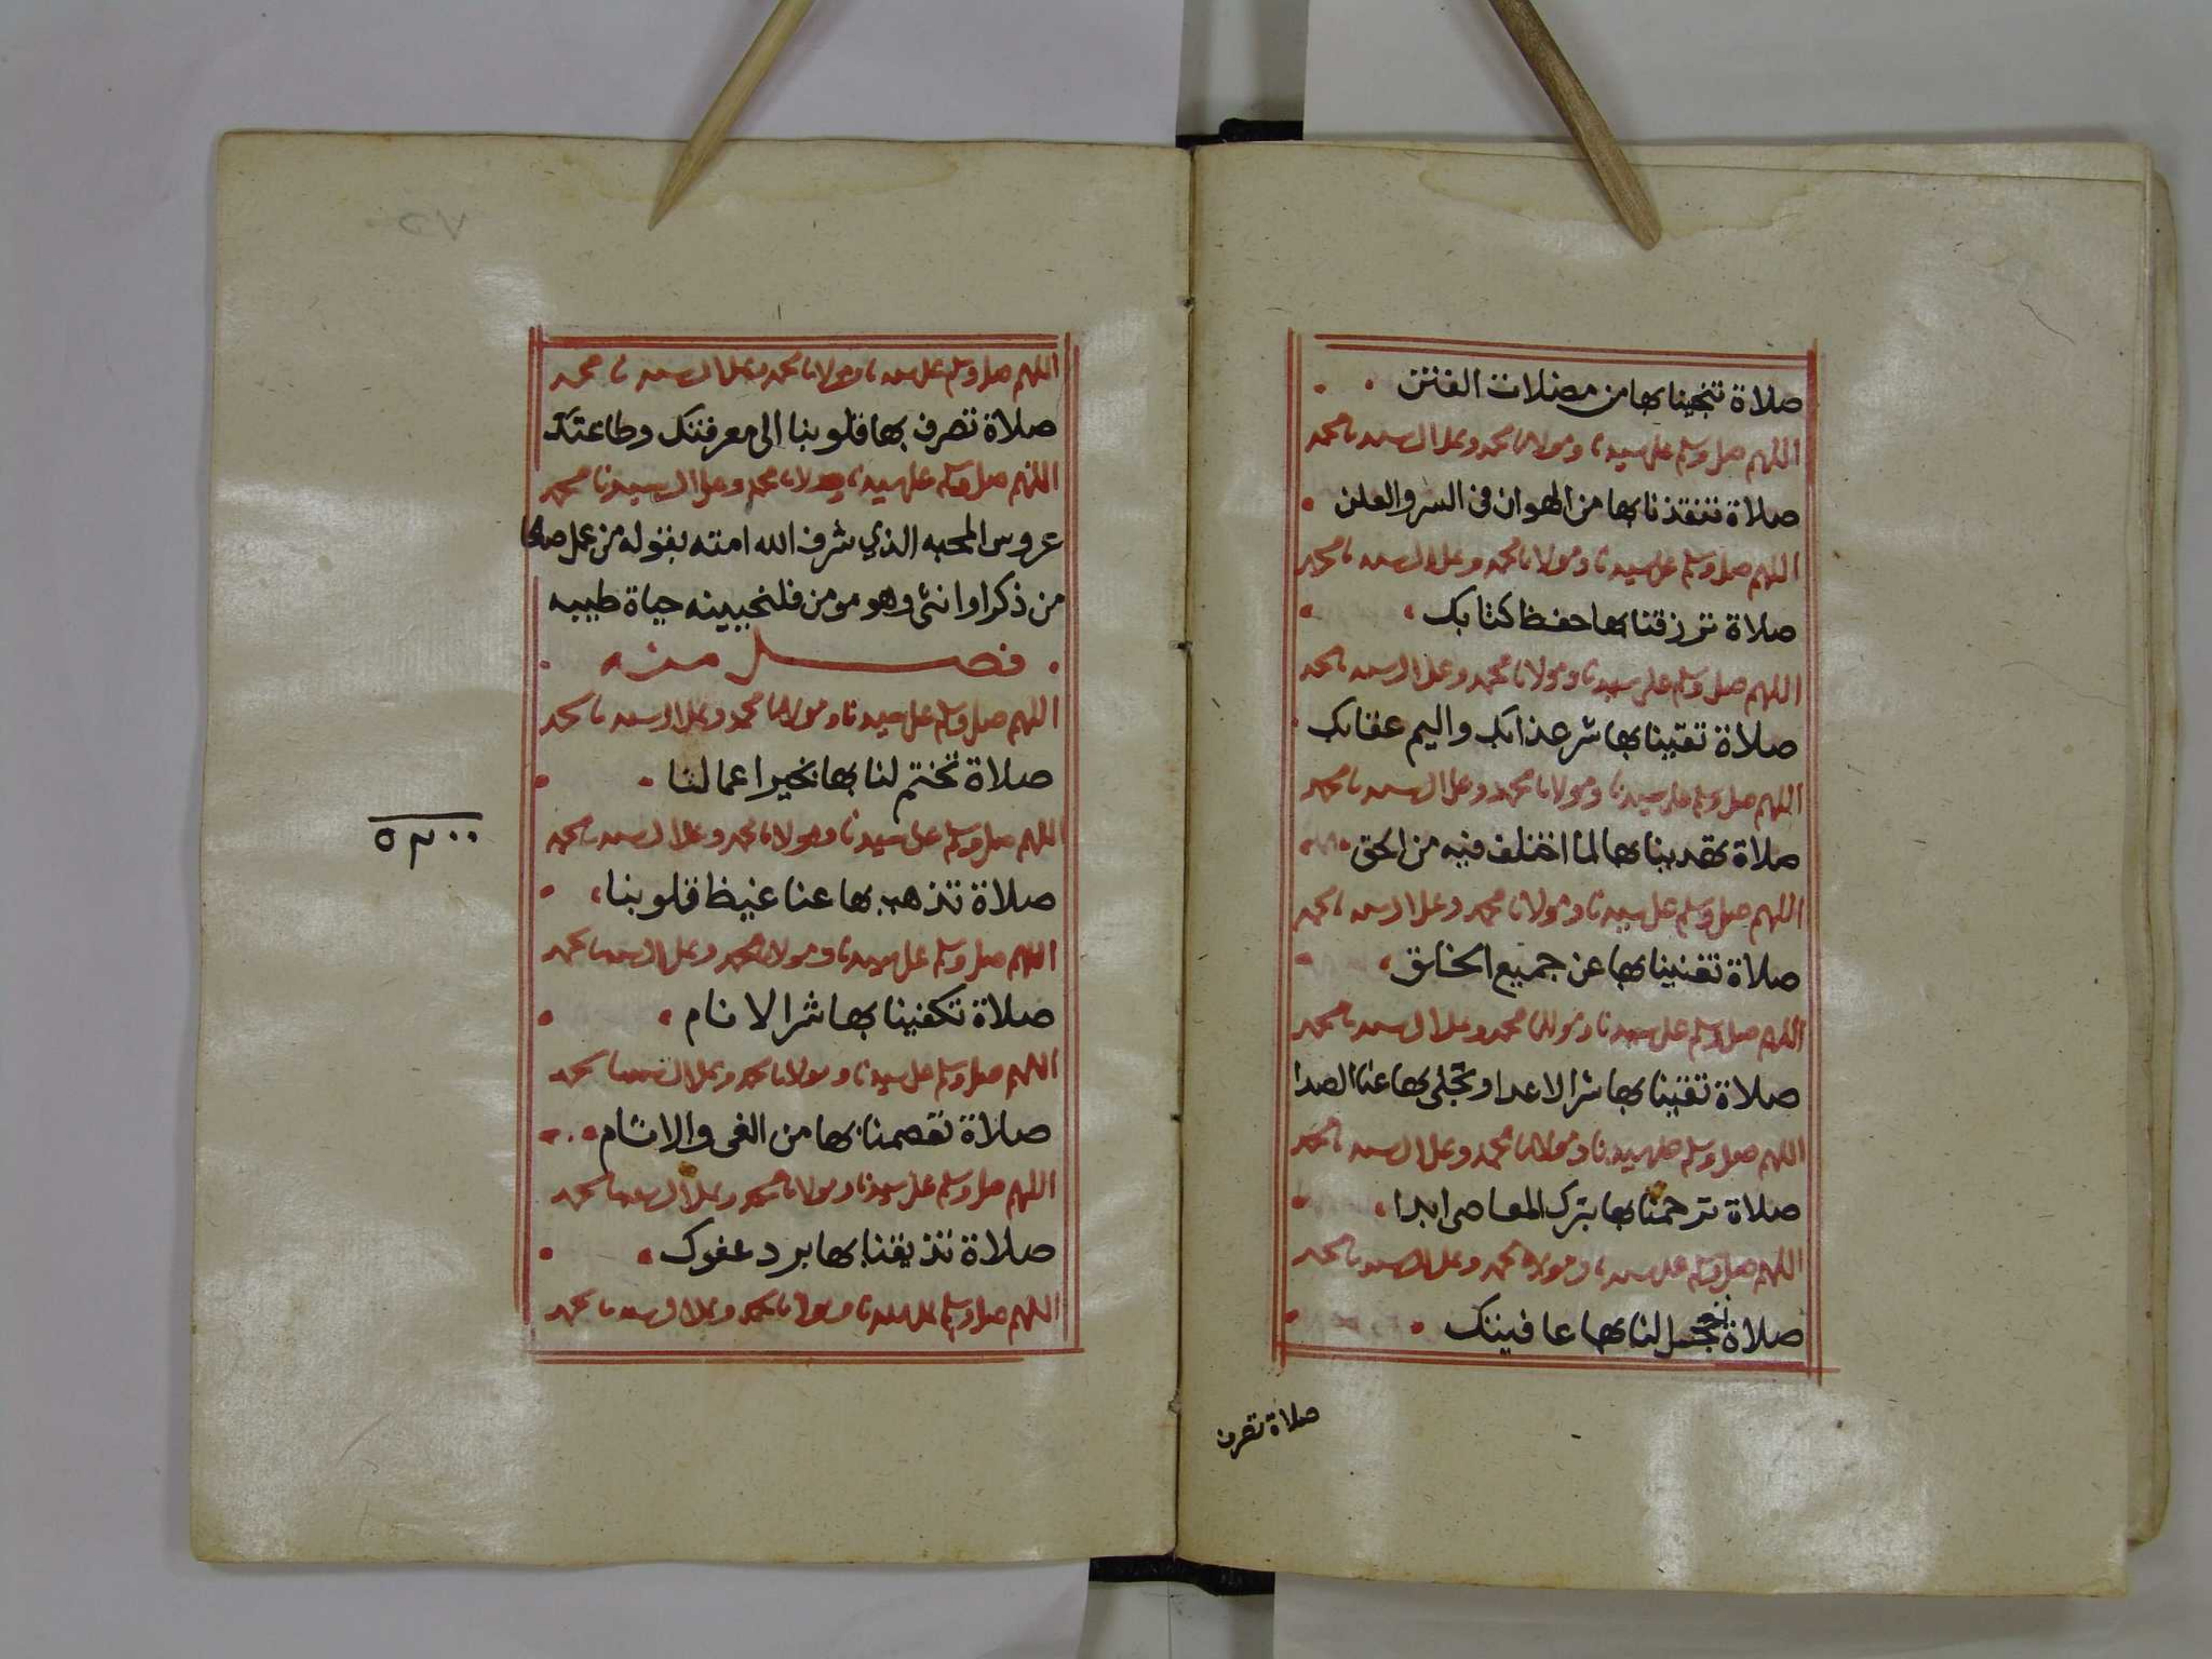 صلاة تنجينا بها من مضلات الفتن
اللهم صل وسلم على سيدنا ومولانا محمد وعلى ال سيدنا محمد
صلاة تنقذنا بها من الهوان في السر والعلن
اللهم صل وسلم على سيدنا ومولانا محمد وعلى ال سيدنا محمد
صلاة ترزقنا بها حفظ كتابك
اللهم صل وسلم على سيدنا ومولانا محمد وعلى ال سيدنا محمد
صلاة تقينا بها شر عذابك واليم عقابك
اللهم صل وسلم على سيدنا ومولانا محمد وعلى ال سيدنا محمد
صلاة تهدينا بها لما اختلف فيه من الحق
اللهم صل وسلم على سيدنا ومولانا محمد وعلى ال سيدنا محمد
صلاة تغنينا بها عن جميع الخلق
اللهم صل وسلم على سيدنا ومولانا محمد وعلى ال سيدنا محمد
صلاة تقينا بها شر الاعدا وتجلى بها عنا الصدا
اللهم صل وسلم على سيدنا ومولانا محمد وعلى ال سيدنا محمد
صلاة ترحمنا بها بترك المعاصى ابدا
اللهم صل وسلم على سيدنا ومولانا محمد وعلى ال سيدنا محمد
صلاة لنا بها عافيتك
صلاة تصرف
اللهم صل وسلم على سيدنا ومولانا محمد وعلى ال سيدنا محمد
صلاة تصرف بها قلوبنا الى معرفتك وطاعتك
اللهم صل وسلم على سيدنا ومولانا محمد وعلى ال سيدنا محمد
عروس المحبه الذي شرف الله امته بقوله من عمل صالحا
من ذكر او انثى وهو مومن فلنحيينه حياة طيبه
فصل منه
اللهم صل وسلم على سيدنا ومولانا محمد وعلى ال سيدنا محمد
صلاة تختم لنا بها بخير اعمالنا
اللهم صل وسلم على سيدنا ومولانا محمد وعلى ال سيدنا محمد
صلاة تذهب بها عنا غيظ قلوبنا
اللهم صل وسلم على سيدنا ومولانا محمد وعلى ال سيدنا محمد
صلاة تكفينا بها شر الانام
اللهم صل وسلم على سيدنا ومولانا محمد وعلى ال سيدنا محمد
صلاة تعصمنا بها من الغى والاثام
اللهم صل وسلم على سيدنا ومولانا محمد وعلى ال سيدنا محمد
صلاة تذيقنا بها برد عفوك
اللهم صل وسلم على سيدنا ومولانا محمد وعلى ال سيدنا محمد